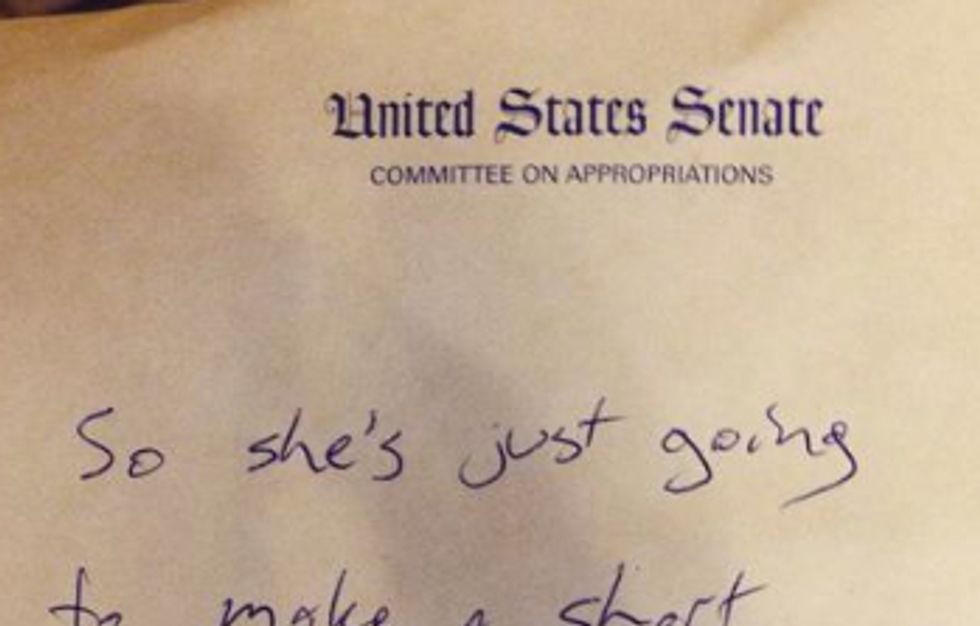 United States Senate
COMMITTEE ON APPROPRIATIONS
So she's just going
to make a short